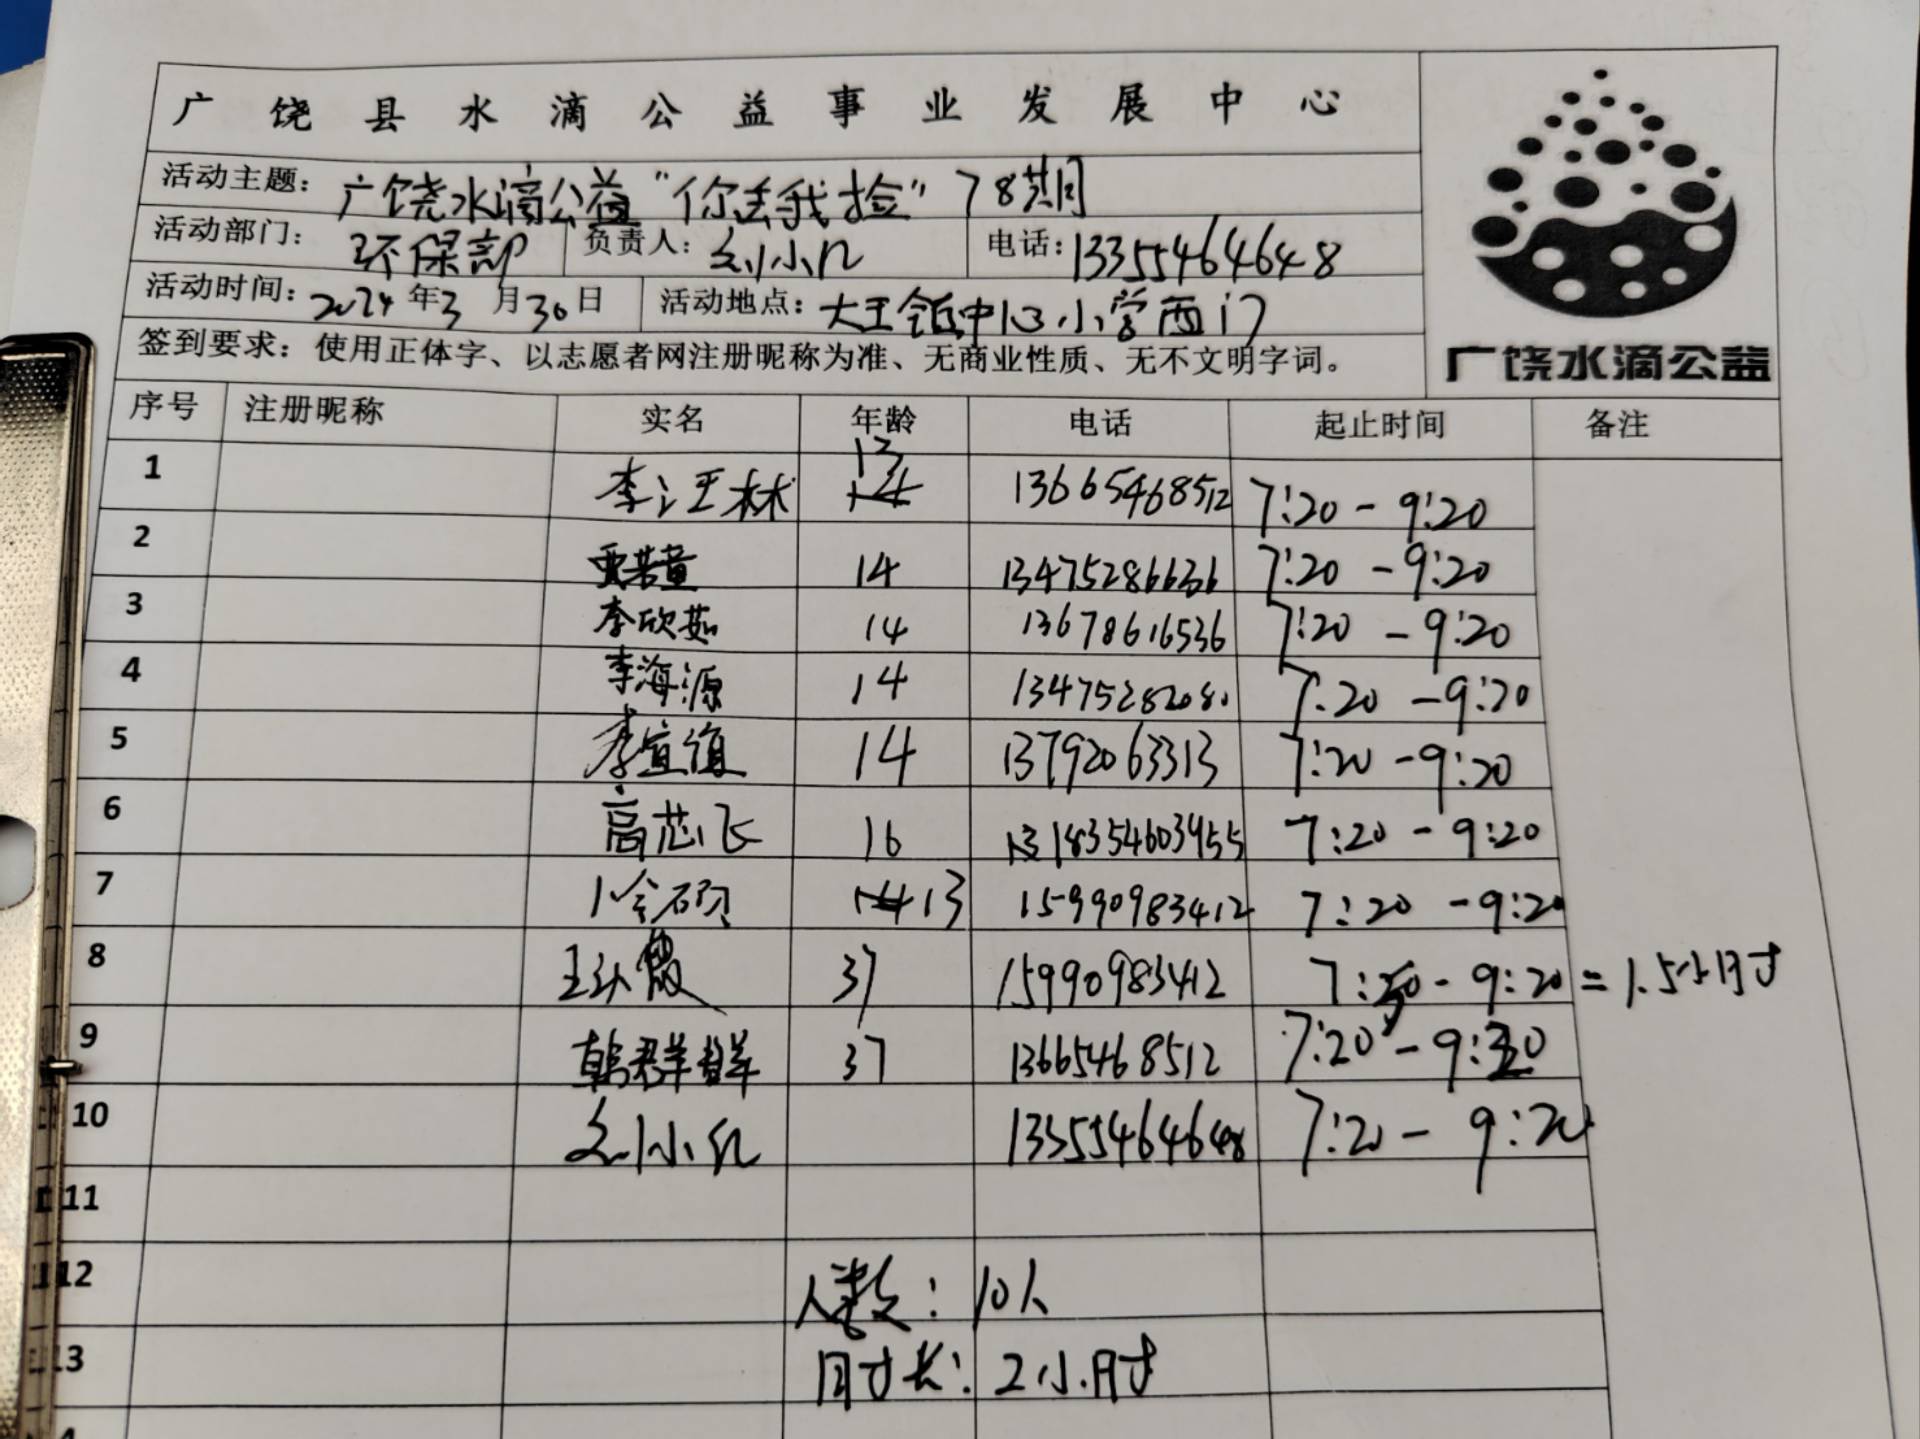 广饶县水滴公益事业发展中心
活动主题：广饶水滴公益“你丢我捡”78期
活动部门：环保部 负责人：刘小几 电话：13355464648
活动时间：2024年3月30日 活动地点：大王镇中心小学西门
签到要求：使用正体字、以志愿者网注册昵称为准、无商业性质、无不文明字词。
广饶水滴公益
序号 注册昵称 实名 年龄 电话 起止时间 备注
1 李江王林 13 13665468512 7:20-9:20
2 贾若童 14 13475286636 7:20-9:20
3 李欣茹 14 13678616536 7:20-9:20
4 李海源 14 13475282080 7:20-9:20
5 李宣值 14 13792063313 7:20-9:20
6 高芯飞 16 18354603955 7:20-9:20
7 硕 13 15990983412 7:20-9:20
8 王 霞 37 15990983412 7:50-9:20=1.5小时
9 韩群群 37 13665468512 7:20-9:20
10 刘小几 13355464648 7:20-9:20
11
12 人数：10人
13 时长：2小时